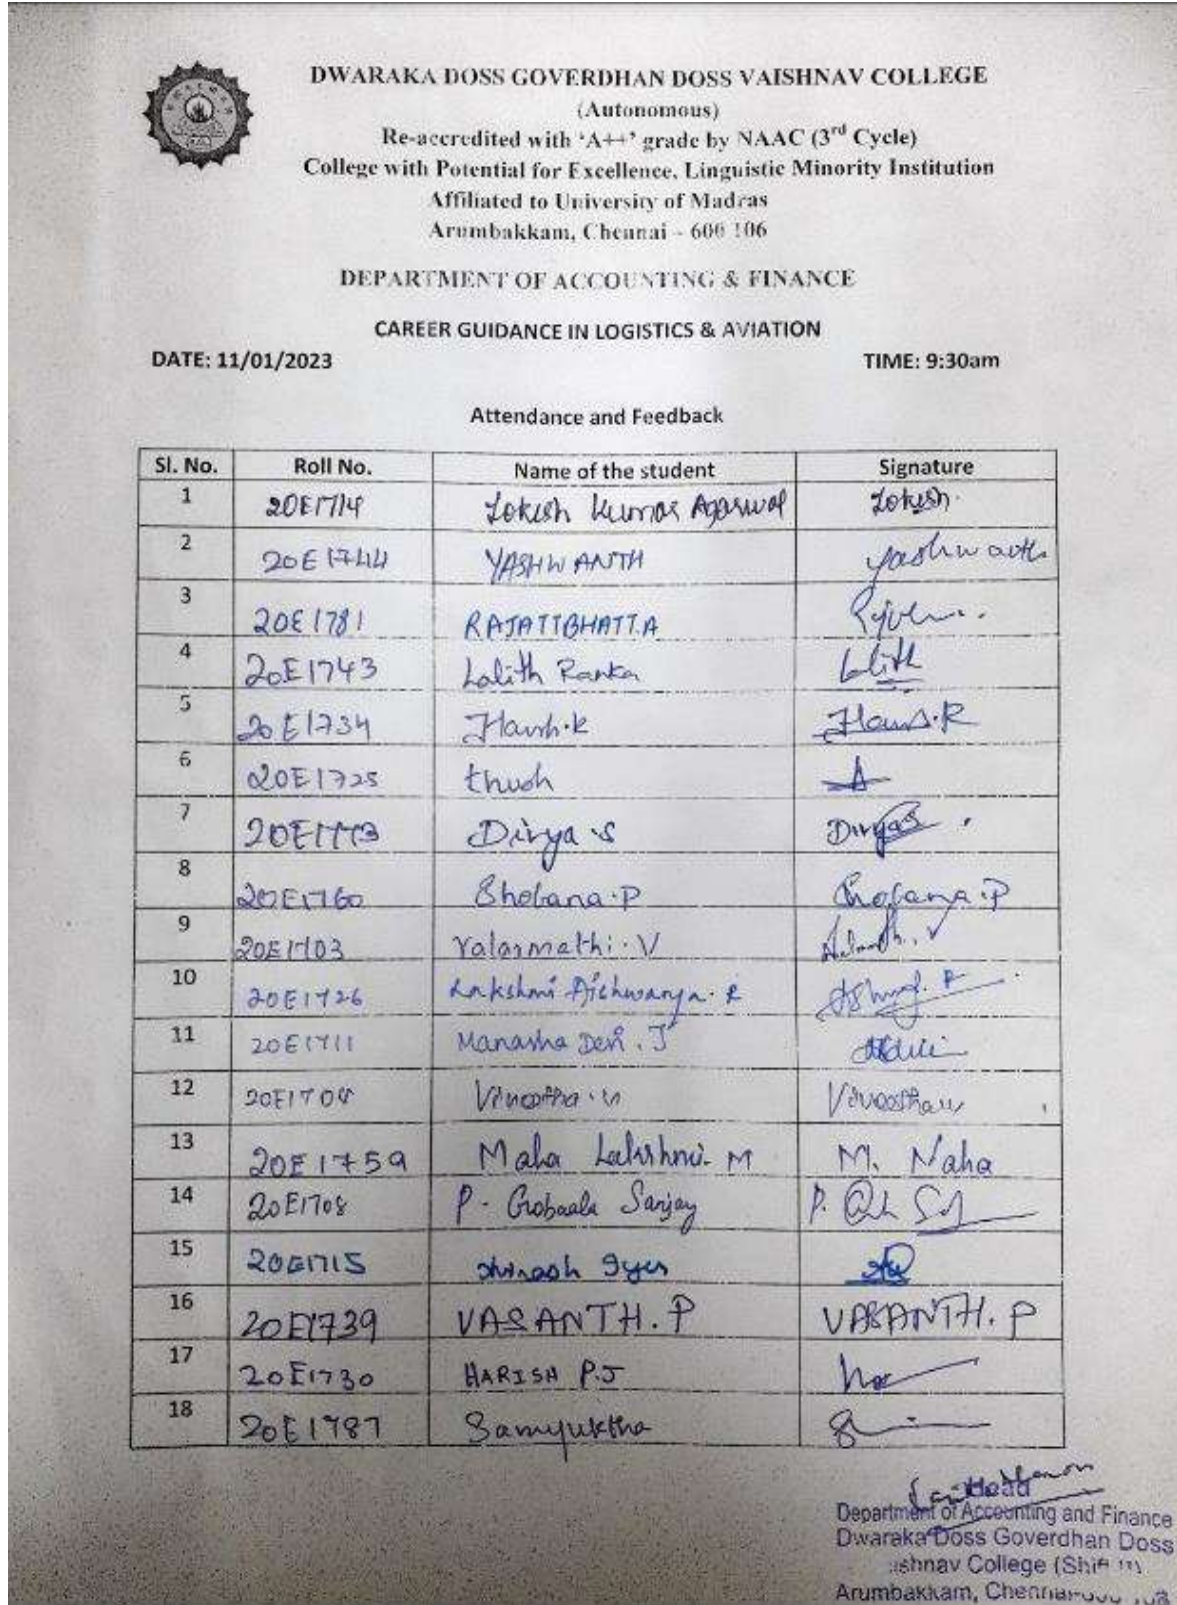 DWARAKA DOSS GOVERDHAN DOSS VAISHNAV COLLEGE
(Autonomous)
Re-accredited with 'A++' grade by NAAC (3rd Cycle)
College with Potential for Excellence, Linguistic Minority Institution
Affiliated to University of Madras
Arumbakkam, Chennai – 600 106
DEPARTMENT OF ACCOUNTING & FINANCE
CAREER GUIDANCE IN LOGISTICS & AVIATION
DATE: 11/01/2023 TIME: 9:30am
Attendance and Feedback
Sl. No. Roll No. Name of the student Signature
1 20E1714 Lokesh Kumar Agarwal Lokesh
2 20E1744 YASHWANTH Yashwanth
3 20E1781 RAJATTBHATT.A
4 20E1743 Lalith Ranka Lalith
5 20E1734 Harsh.k
6 20E1725 Khush
7 20E1773 Divya.S Divya.S
8 20E1760 Shobana.P Shobana.P
9 20E1703 Valarmathi.V
10 20E1726 Lakshmi Aishwarya.R
11 20E1711 Manasha Devi.J
12 20E1704
13 20E1759 Maha Lakshmi.M M. Maha
14 20E1708 P. Gobaala Sanjay
15 20E1715 Avinash Iyer
16 20E1739 VASANTH.P VASANTH.P
17 20E1730 HARISH P.J
18 20E1787 Samyuktha
Head
Department of Accounting and Finance
Dwaraka Doss Goverdhan Doss
ishnav College
Arumbakkam,